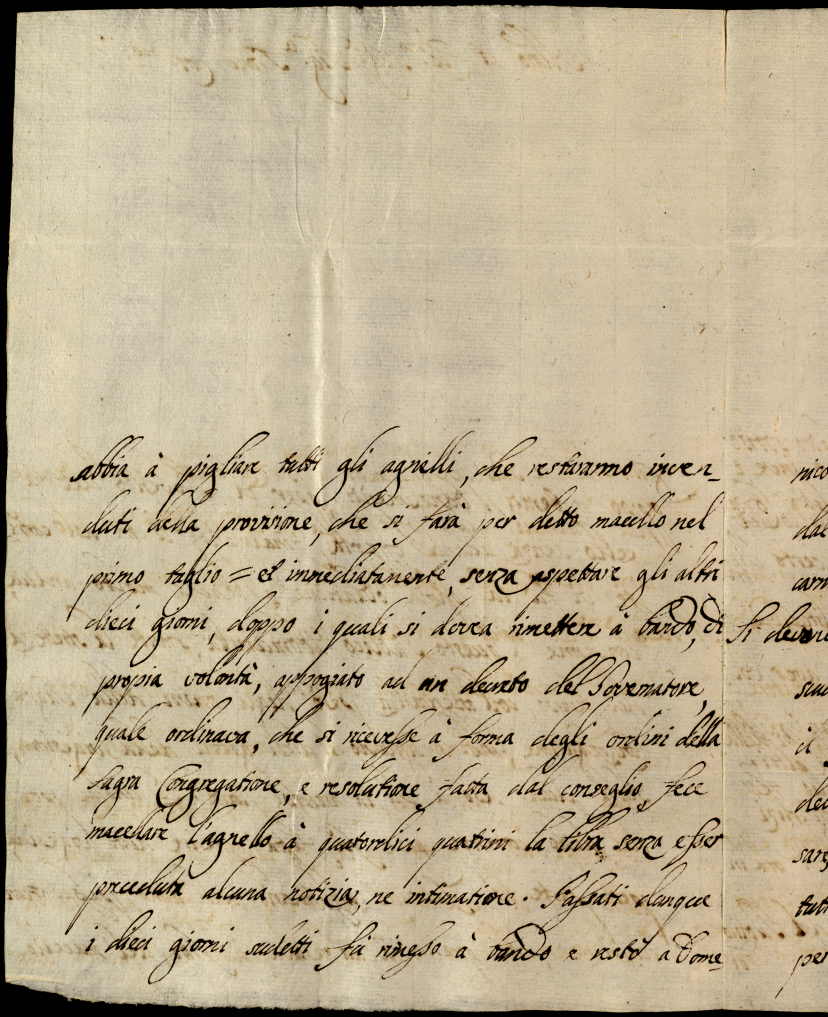 abbia à pigliare tutti gli agnelli, che restaranno inven-
duti della provisione, che si farà per detto macello nel
primo taglio = et immediatamente, senza aspettare gli altri
dieci giorni, doppo i quali si dovea rimettere à bando, di
propria volontà, appogiato ad un decreto del Governatore,
quale ordinava, che si ricevesse à forma degli ordini della
sagra Congregatione, e resolutione fatta dal conseglio, fece
macellare l'agnello à quatordici quatrini la libra senza esser
preceduta alcuna notizia, ne intimatione. Passati dunque
i dieci giorni sudetti fù rimesso à bando e restò a Dome-
nico
dal
carn
si devono
il
ded
tutt
per